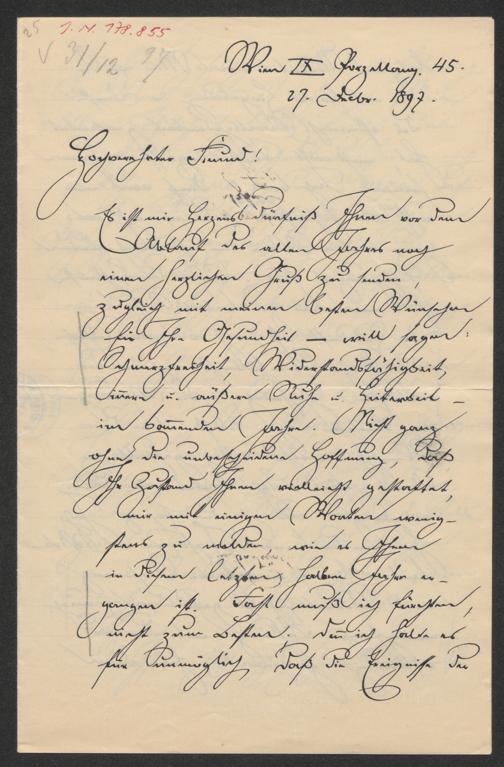 25
I. N. 178.855
√ 31/12 97
Wien IX Porzellang. 45.
27. Decbr. 1897.
Hochverehrter Freund!
Es ist mir Herzensbedürfniß Ihnen vor dem
Ablauf des alten Jahres noch
einen herzlichen Gruß zu senden,
zugleich mit meinen besten Wünschen
für Ihre Gesundheit – will sagen:
Schmerzfreiheit, Widerstandsfähigkeit,
innere u. äußere Ruhe u. Heiterkeit –
im kommenden Jahre. Nicht ganz
ohne die unbescheidene Hoffnung, daß
Ihr Zustand Ihnen vielleicht gestattet,
mir mit einigen Worten wenig-
stens zu melden wie es Ihnen
in diesem letzten halben Jahr er-
gangen ist. Fast muß ich fürchten,
nicht zum Besten. Denn ich halte es
für unmöglich, daß die Ereignisse der